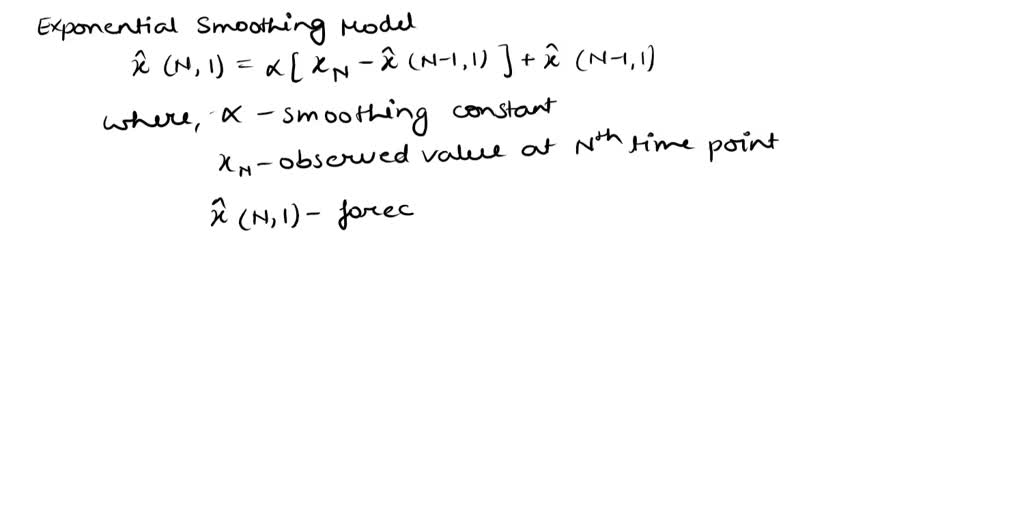 Exponential Smoothing Model
x̂ (N, 1) = α [ x_N - x̂ (N-1, 1) ] + x̂ (N-1, 1)
where, α - smoothing constant
x_N - observed value at N^th time point
x̂ (N, 1) - forec